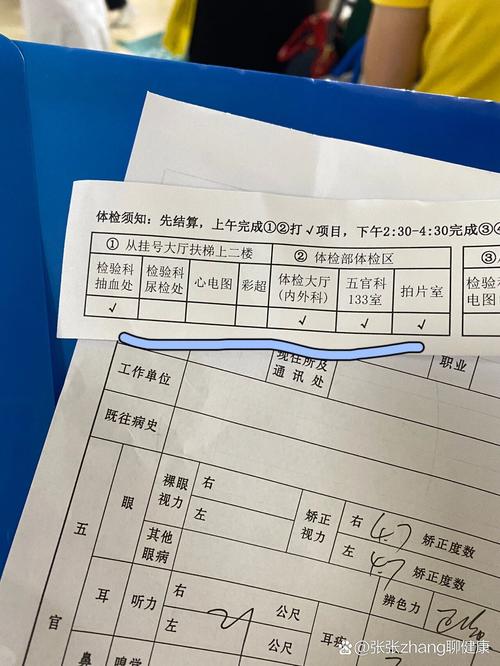 体检须知:先结算,上午完成①②打✓项目,下午2:30-4:30完成③④
① 从挂号大厅扶梯上二楼 ② 体检部体检区
检验科抽血处 检验科尿检处 心电图 彩超 体检大厅(内外科) 五官科133室 拍片室
✓ ✓ ✓ ✓
现住所及通讯处 职业
工作单位
既往病史
五官
眼 裸眼视力 右 矫正视力 右 4.7 矫正度数
左 左 4.7 矫正度数
其他眼病 辨色力
耳 听力 右 公尺
左 公尺 耳疾
鼻 嗅觉
@张张zhang聊健康